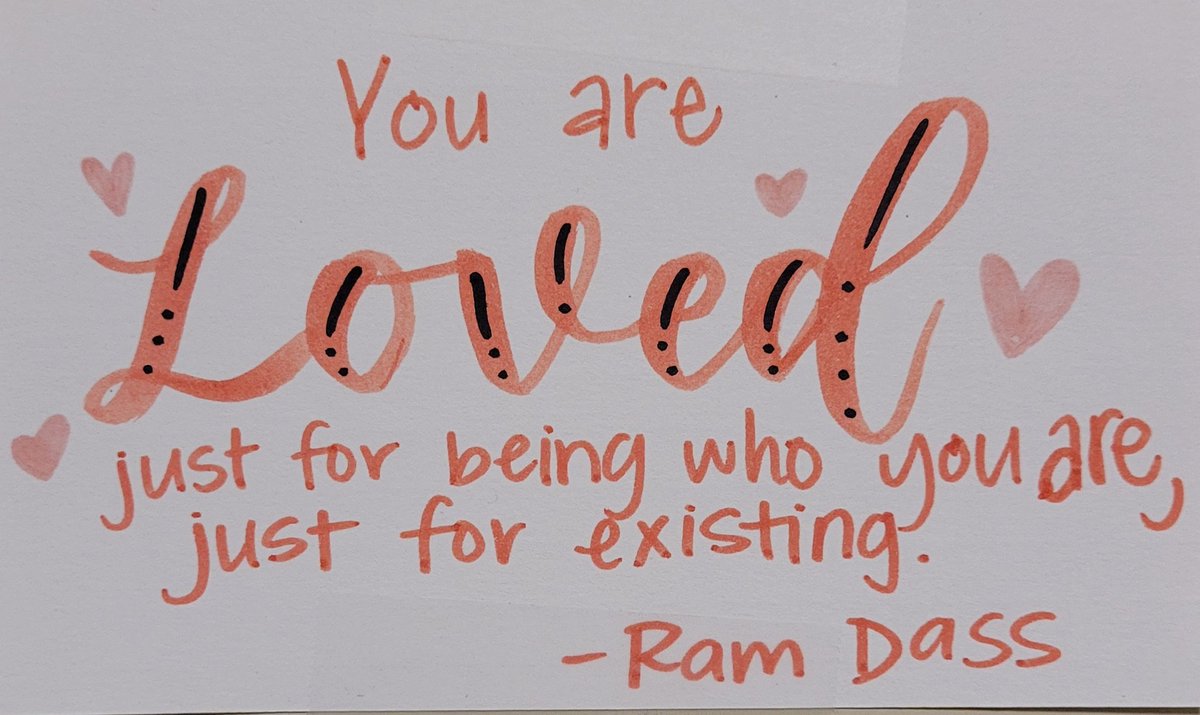 You are
Loved
just for being who you are,
just for existing.
- Ram Dass